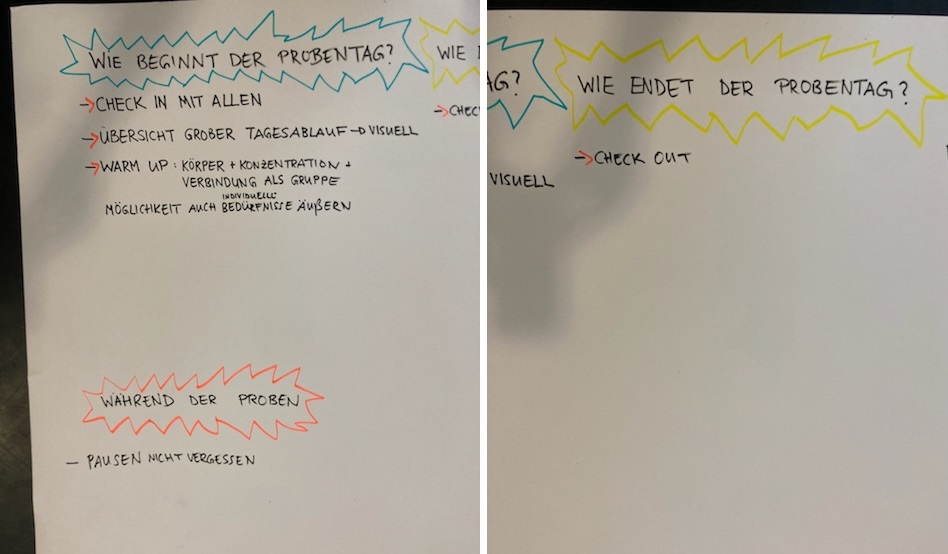 WIE BEGINNT DER PROBENTAG?
→ CHECK IN MIT ALLEN
→ ÜBERSICHT GROBER TAGESABLAUF → VISUELL
→ WARM UP: KÖRPER + KONZENTRATION +
VERBINDUNG ALS GRUPPE
INDIVIDUELLE
MÖGLICHKEIT AUCH BEDÜRFNISSE ÄUßERN
WÄHREND DER PROBEN
— PAUSEN NICHT VERGESSEN
WIE
→ CHEC
AG?
VISUELL
WIE ENDET DER PROBENTAG?
→ CHECK OUT